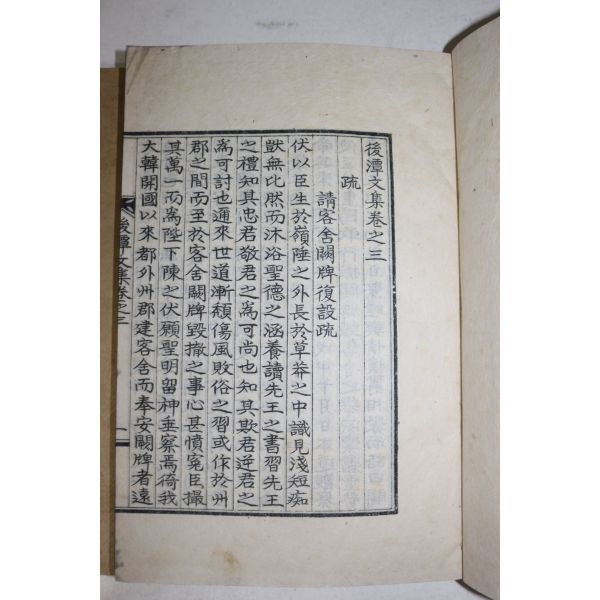 後潭文集卷之三
疏
請客舍闕牌復設疏
伏以臣生於嶺陲之外長於草莽之中識見淺短痴
獃無比然而沐浴聖德之涵養讀先王之書習先王
之禮知其忠君敬君之爲可尚也知其欺君逆君之
爲可討也通來世道漸頹傷風敗俗之習或作於州
郡之間而至於客舍闕牌毀撤之事心甚憤冤臣撮
其萬一而爲陛下陳之伏願聖明留神垂察焉猗我
大韓開國以來都外州郡建客舍而奉安闕牌者遠
後潭文集卷之三
一